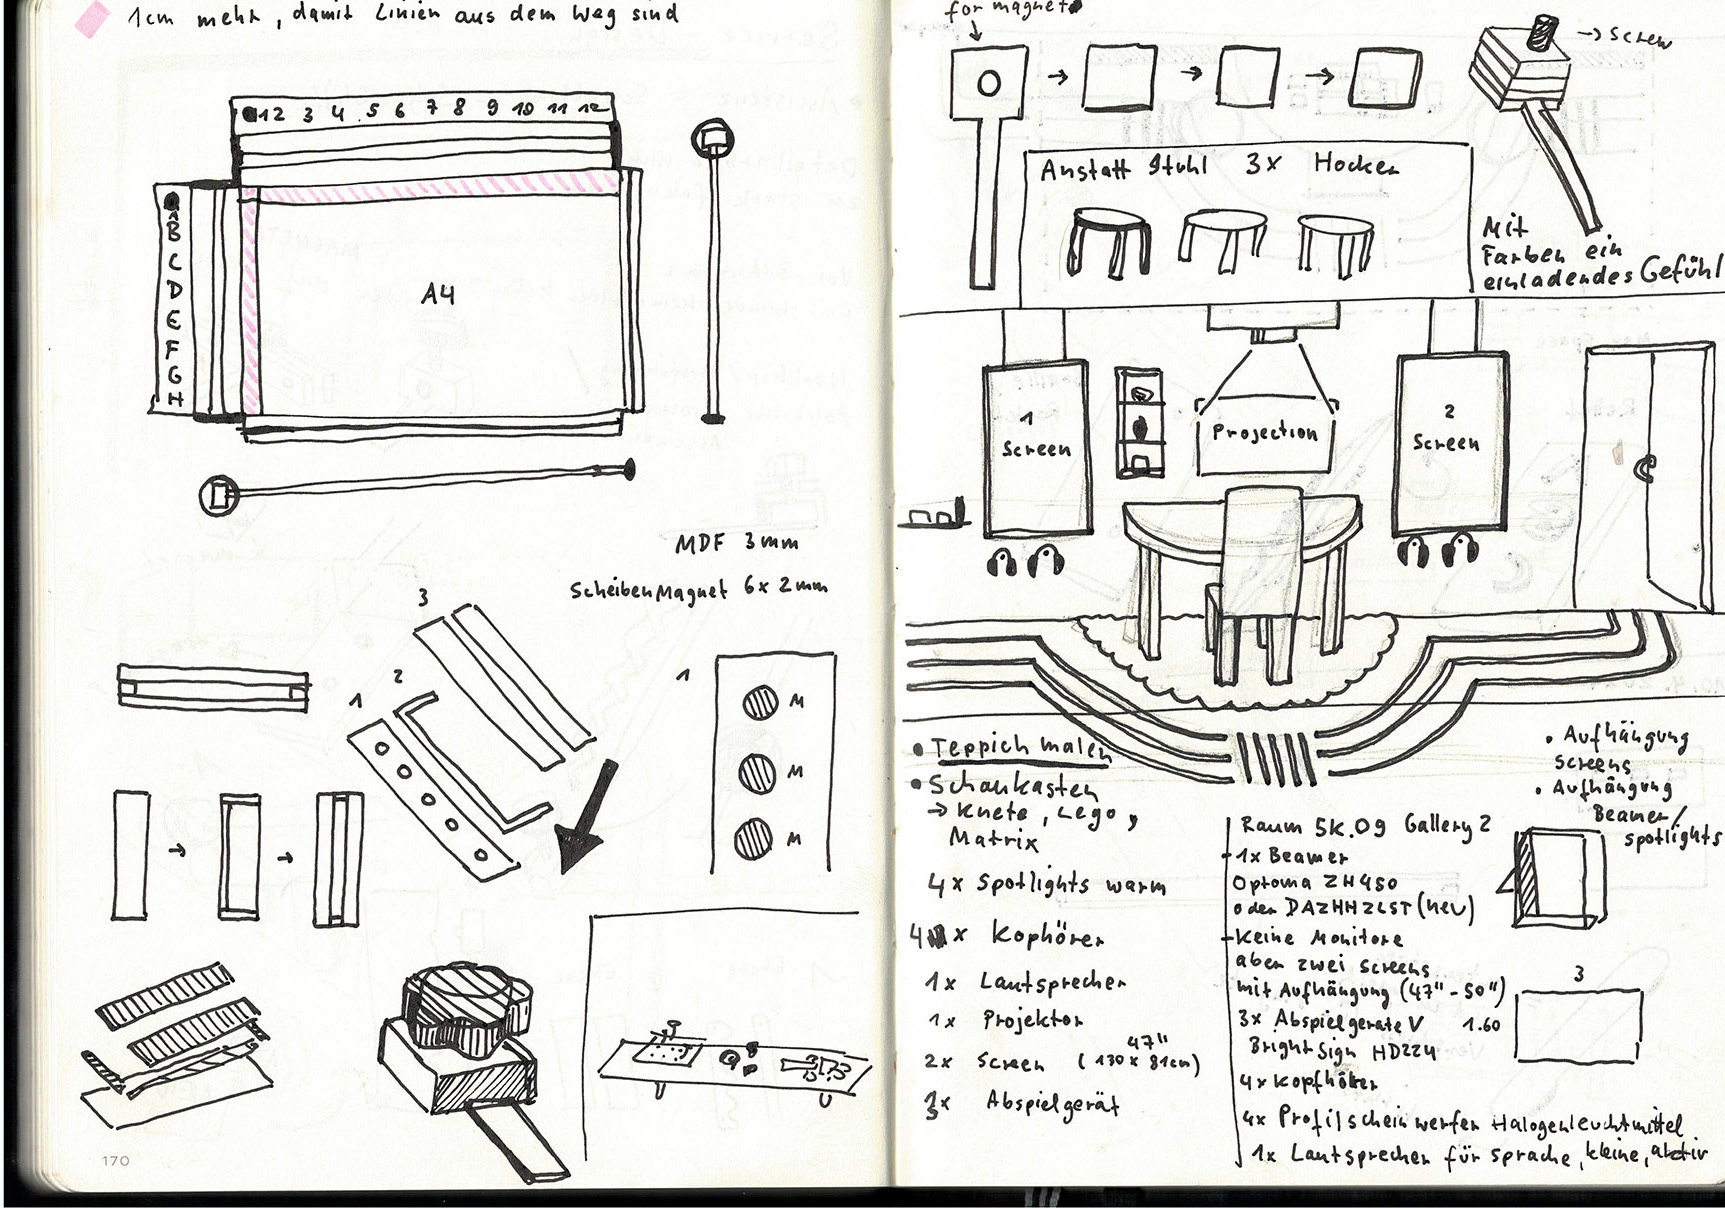 1cm mehr, damit Linien aus dem Weg sind
1 2 3 4 5 6 7 8 9 10 11 12
A
B
C
D
E
F
G
H
A4
MDF 3mm
ScheibenMagnet 6x2mm
3
2
1
1
M
M
M
170
for magnet
→ Screw
Anstatt Stuhl 3x Hocker
Mit
Farben ein
einladendes Gefühl
1
Screen
Projection
2
Screen
• Teppich malen
• Schaukasten
→ Knete, Lego,
Matrix
4x Spotlights warm
4x Kophörer
1x Lautsprecher
1x Projektor
47"
2x Screen (130 x 81cm)
3x Abspielgerät
• Aufhängung
Screens
• Aufhängung
Beamer/
spotlights
Raum 5K.09 Gallery 2
-1x Beamer
Optoma ZH450
oder DAZHHZLST (neu)
-Keine Monitore
aber zwei Screens
mit Aufhängung (47"-50")
3x Abspielgeräte V
BrightSign HD224
4x Kopfhörer
4x Profilscheinwerfer Halogenleuchtmittel
1x Lautsprecher für Sprache, kleine, aktiv
3
1.60